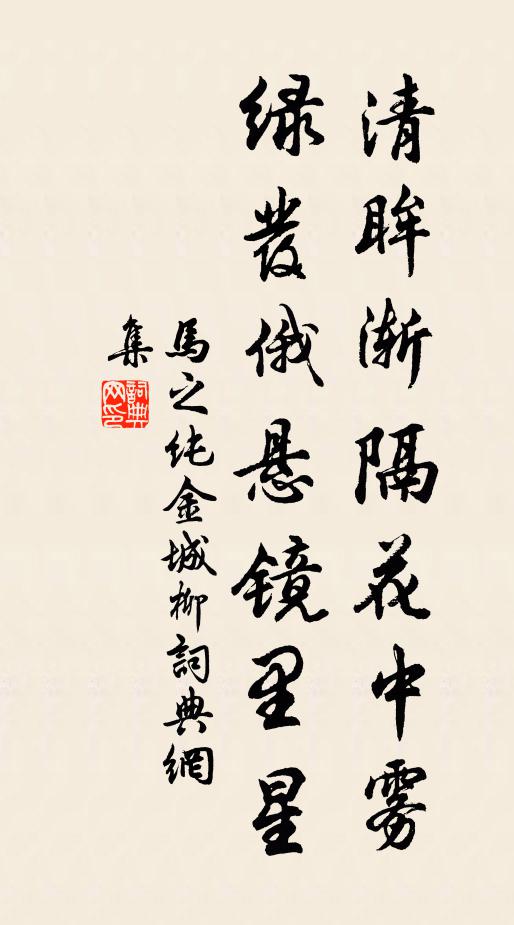 清眸渐隔花中雾
绿发俄悬镜里星
馬之纯金城柳詞典網
集
詞典网印